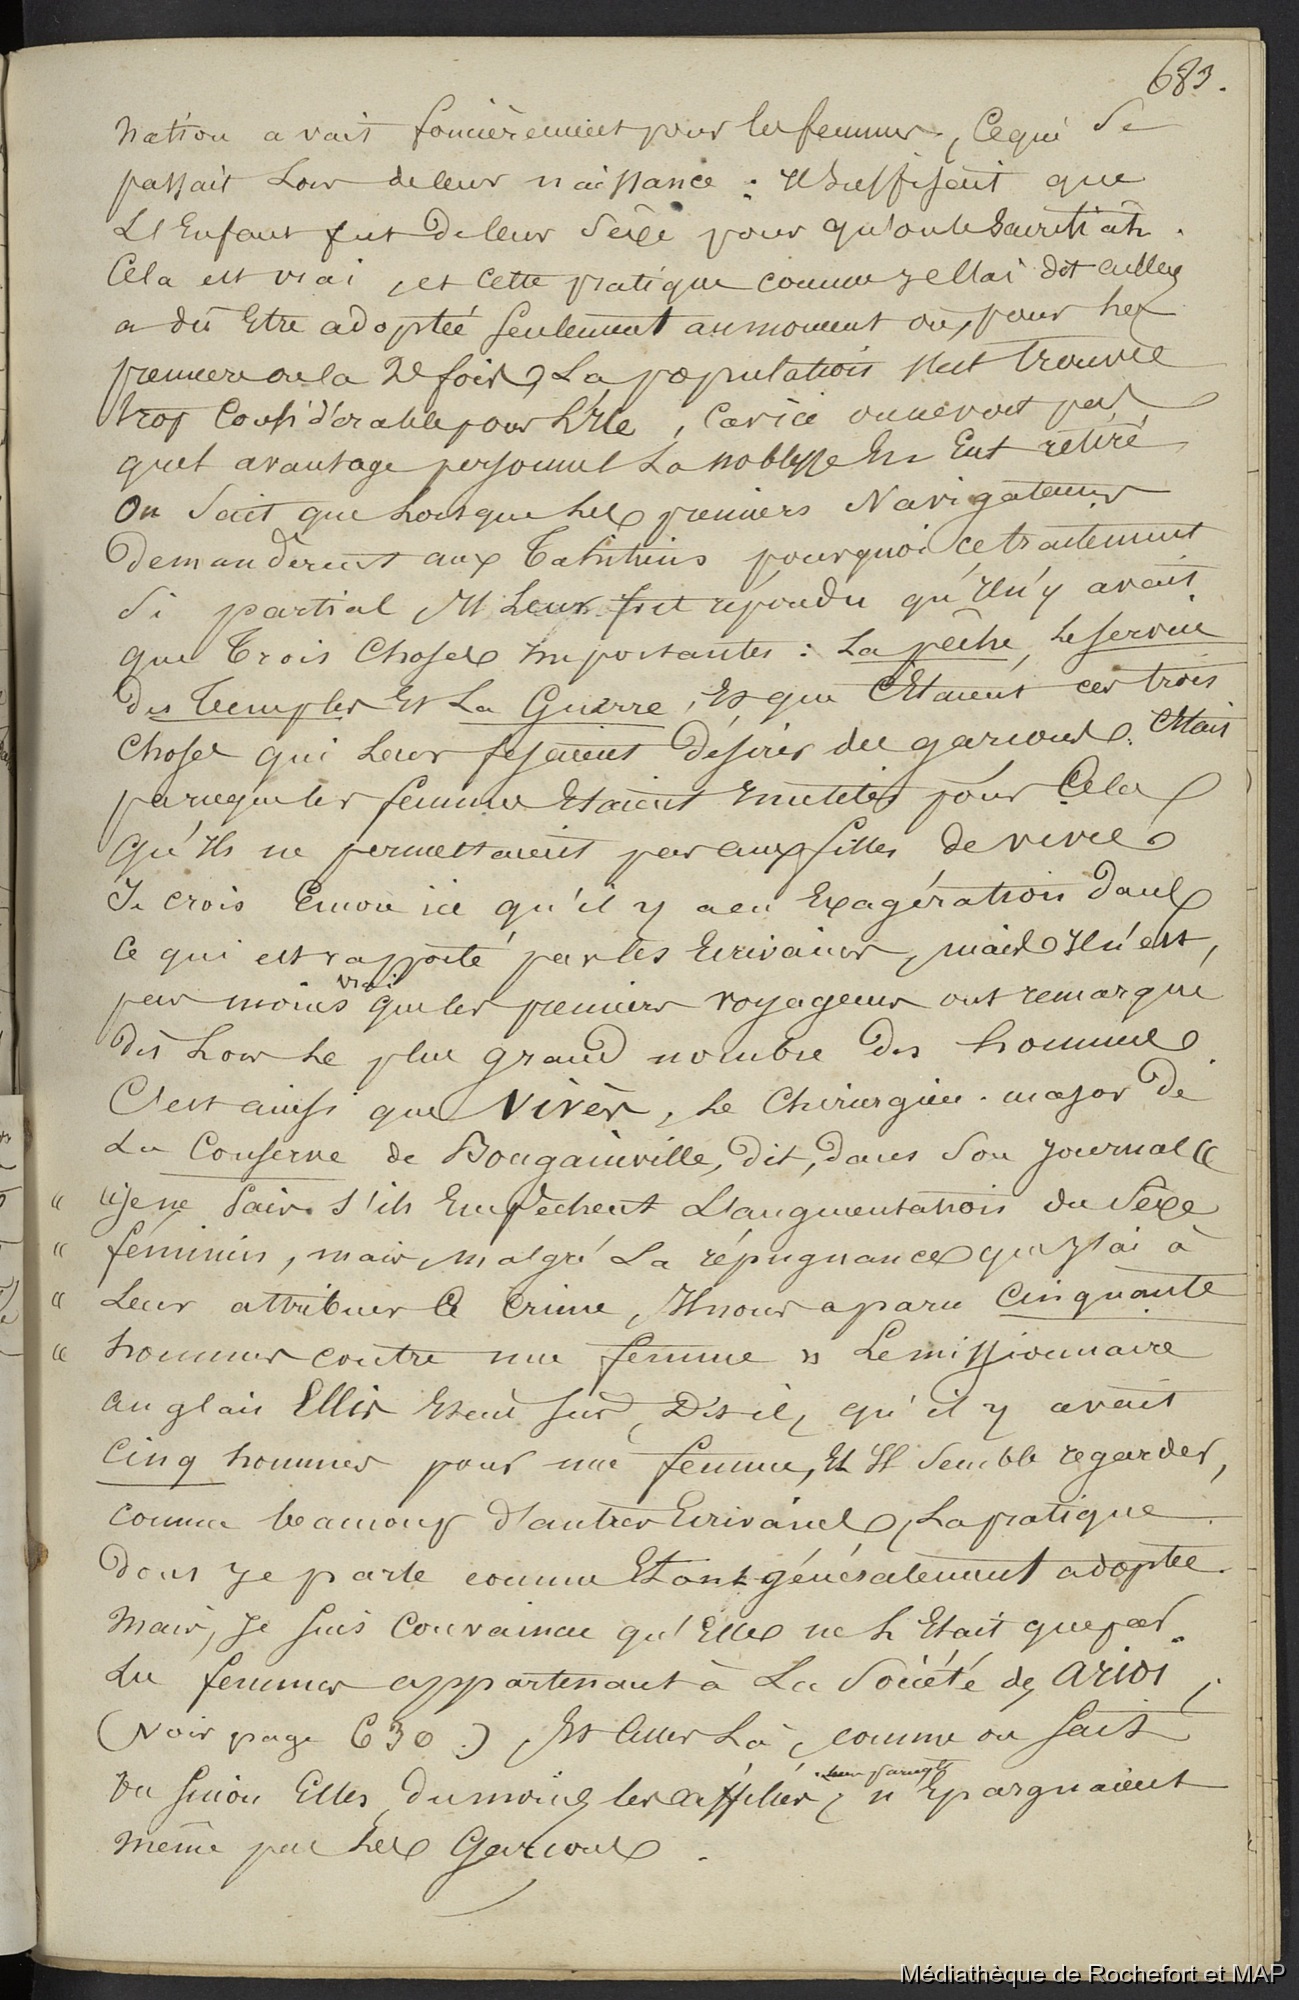 683.
nation avait foncièrement pour les femmes, Ce qui Se
passait Lors de leur naissance : Il Suffisait que
L'Enfant fut De leur Sexe pour qu'on le Sacrifiât.
Cela est vrai, et Cette pratique comme je l'ai dit ailleurs
a dû Etre adoptée Seulement au moment où, pour la
premiere ou la 2e fois, La population s'est trouvée
trop Considérable pour L'Ile, Car ici on ne voit pas
quel avantage personnel La noblesse En Eut retiré
On Sait que Lorsque Les premiers Navigateurs
Demandèrent aux Tahitiens pourquoi ce traitement
Si partial Il Leur fut répondu qu'Il n'y avait
que Trois Choses Importantes : La pêche, le service
Des Temples Et La Guerre, Et que C'Etaient ces trois
Choses qui Leur fesaient Désirer des garçons. C'Etait
parceque les femmes Etaient Inutiles pour Cela
Qu'Ils ne permettaient pas aux filles de vivre
Je crois Encore ici qu'il y a eu Exagération dans
Ce qui est rapporté par les Ecrivains, mais Il n'est,
pas moins vrai que les premiers voyageurs ont remarqué
Dès Lors Le plus grand nombre Des hommes.
C'est ainsi que Vivès, Le Chirurgien-major De
La Conserve de Bougainville, Dit, dans Son Journal «
« «je ne Sais S'ils Empêchent L'augmentation du Sexe
« féminin, mais, malgré La répugnance que J'ai à
« Leur attribuer Ce Crime, Il nous a paru Cinquante
« hommes contre une femme » Le missionnaire
anglais Ellis Etait Sur, Dit-il, qu'il y avait
Cinq hommes pour une femme, Et Il Semble regarder,
comme beaucoup D'autres Ecrivains, La pratique
Dont Je parle comme Etant généralement adoptée.
Mais, Je Suis Convaincu qu'Elle ne L'Etait que par
Les femmes appartenant à La Société des Ariois,
(Voir page 630.) Et Celles Là, comme on Sait
ou Sinon Elles, Du moins les affiliés, leurs parents, n'Epargnaient
même pas Les Garçons.
Médiathèque de Rochefort et MAP